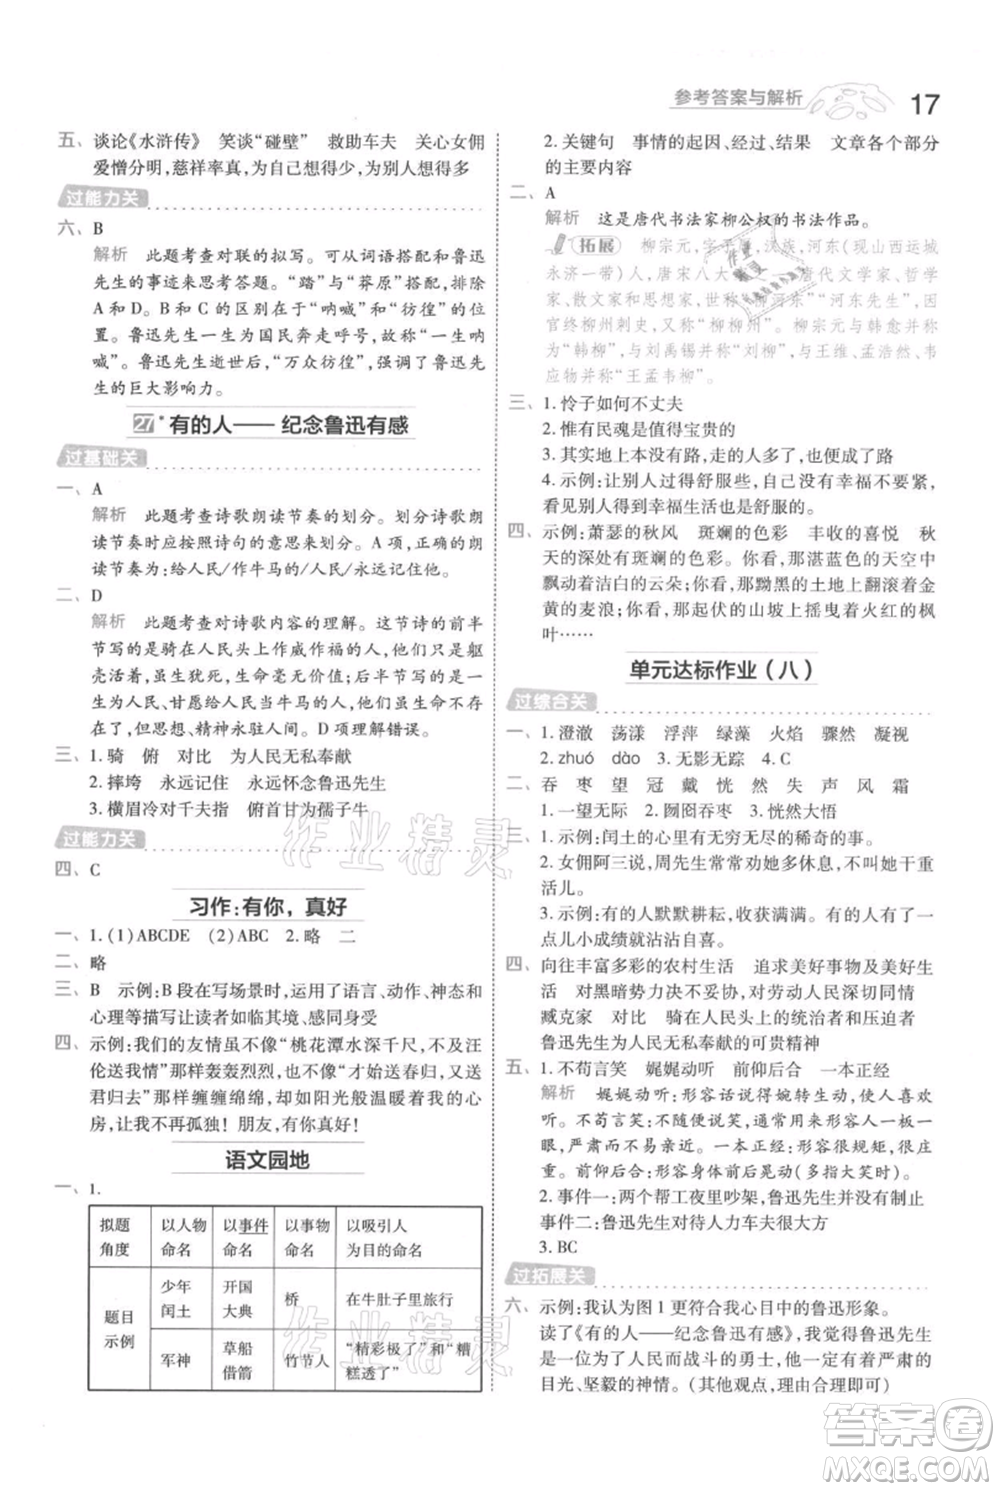 参考答案与解析
17
五、谈论《水浒传》 笑谈“碰壁” 救助车夫 关心女佣
爱憎分明,慈祥率真,为自己想得少,为别人想得多
过能力关
六、B
解析 此题考查对联的拟写。可以从词语搭配和鲁迅
先生的事迹来思考答题。“踏”与“莽原”搭配,排除
A 和 D。B 和 C 的区别在于“呐喊”和“彷徨”的位
置。鲁迅先生一生为国民奔走呼号,技巧是“一生呐
喊”。鲁迅先生逝世,“万众彷徨”,强调了鲁迅先
生的巨大影响力。
27* 有的人—— 纪念鲁迅有感
过基础关
一、A
解析 此题考查诗歌朗读节奏的划分。划分诗歌朗
读节奏时应按照诗句的意思来划分。A 项,正确的朗
读节奏为:给人民/作牛马的/人民/永远记住他。
二、D
解析 此题考查对诗歌内容的理解。这节诗的前半
节写的是骑在人民头上作威作福的人,他们的身体躯
壳活着,虽生犹死。后半节写的是像鲁迅一样热爱人
民、甘愿为人民当牛马的人,他们的身体虽然死亡,但
虽死犹生,精神永驻人间。D 项理解错误。
三、1. 骑 俯 对比 为人民无私奉献
2. 摔垮 永远记住 永远怀念鲁迅先生
3. 横眉冷对千夫指 俯首甘为孺子牛
过能力关
四、C
习作:有你，真好
一、1. (1)ABCDE (2)ABC 2. 略 二
二、略
三、B 示例:B 段在写场景时,运用了语言、动作、神态和
心理等描写让读者如临其境、感同身受
四、示例:我们的友情虽不像“桃花潭水深千尺,不及汪
伦送我情”那样轰轰烈烈,也不像“此去经年归,又送
君归去”那样缠缠绵绵,却如阳光般温暖着我的心
房,让我不再孤独！朋友,有你真好！
语文园地
一、1.
拟题角度 以人物命名 以事件命名 以事物命名 以吸引人为目的命名
题目示例 少年闰土 开国大典 桥 在牛肚子里旅行
军神 草船借箭 竹节人 “精彩极了”和“糟糕透了”
2. 关键句 事情的起因、经过、结果 文章各个部分
的主要内容
二、A
解析 这是唐代书法家柳公权的书法作品。
拓展 柳宗元,字子厚,汉族,河东(现山西运城
永济一带)人,唐宋八大家之一,唐代文学家、哲学
家、散文家和思想家,世称“柳河东”“河东先生”,因
官终柳州刺史,又称“柳柳州”。柳宗元与韩愈并称
为“韩柳”,与刘禹锡并称“刘柳”,与王维、孟浩然、韦
应物并称“王孟韦柳”。
三、1. 怜子如何不丈夫
2. 惟有民魂是值得宝贵的
3. 其实地上本没有路,走的人多了,也便成了路
4. 示例:让别人过得舒服些,自己没有幸福不要紧,
看见别人得到幸福生活也是舒服的
四、示例:萧瑟的秋风 斑斓的色彩 丰收的喜悦 秋
天的深处有斑斓的色彩。你看,那湛蓝色的天空中
飘动着洁白的云朵;你看,那黝黑的土地上翻滚着金
黄的麦浪;你看,那起伏的山坡上摇曳着火红的枫
叶……
单元达标作业（八）
过综合关
一、1. 澄澈 荡漾 浮萍 绿藻 火焰 骤然 凝视
2. zhuó dào 3. 无影无踪 4. C
二、吞 枣 望 冠 戴 恍 然 失 声 风 霜
1. 一望无际 2. 囫囵吞枣 3. 恍然大悟
三、1. 示例:闰土的心里有无穷无尽的稀奇的事。
2. 女佣阿三说,周先生常常劝她多休息,不叫她干重
活儿。
3. 示例:有的人默默耕耘,收获满满。有的人有了一
点儿小成绩就沾沾自喜。
四、向往丰富多彩的农村生活 追求美好事物及美好生
活 对黑暗势力决不妥协,对劳动人民深切同情
臧克家 对比 骑在人民头上的统治者和压迫者
鲁迅先生为人民无私奉献的可贵精神
五、1. 不苟言笑 娓娓动听 前仰后合
解析 娓娓动听:形容话说得婉转生动,使人喜欢
听。不苟言笑:不随便说笑,形容态度庄重严肃。另
一眼,严肃而不易亲近。一本正经:形容很规矩,很庄
重。前仰后合:形容身体前后晃动(多指大笑时)。
2. 事件一:两个帮工夜里吵架,鲁迅先生没有责备
事件二:鲁迅先生对待人力车夫很大方
3. BC
过拓展关
六、示例:我认为图 1 更符合我心目中的鲁迅形象。
读了《有的人——纪念鲁迅有感》,我觉得鲁迅先生
是为了人民而战斗的勇士,他应该有着严肃的
目光、坚毅的神情。(其他观点,有理即可)
作业精灵
作业精灵
答案圈
MXQE.COM